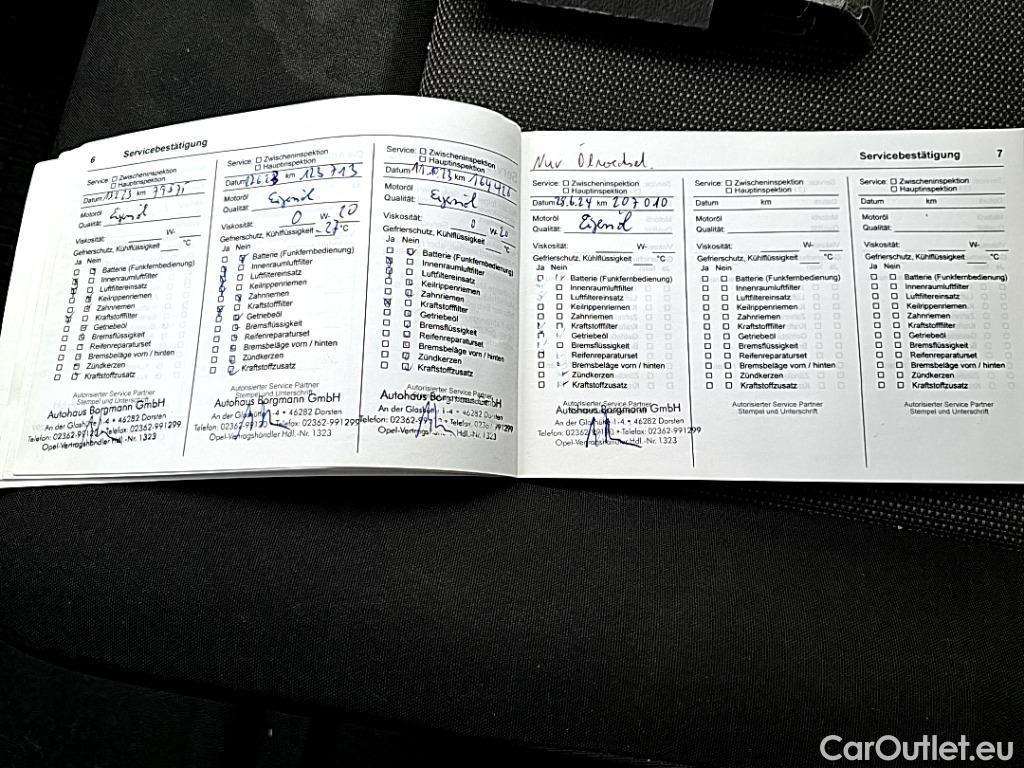 6 Servicebestätigung
Service: ☐ Zwischeninspektion
☐ Hauptinspektion
Datum km
Motoröl
Qualität: Eigenöl
Viskosität: W-
Gefrierschutz, Kühlflüssigkeit °C
Ja Nein
Batterie (Funkfernbedienung)
Innenraumluftfilter
Luftfiltereinsatz
Keilrippenriemen
Zahnriemen
Kraftstofffilter
Getriebeöl
Bremsflüssigkeit
Reifenreparaturset
Bremsbeläge vorn / hinten
Zündkerzen
Kraftstoffzusatz
Autorisierter Service Partner
Stempel und Unterschrift
Autohaus Borgmann GmbH
An der Glashütte 1-4 • 46282 Dorsten
Telefon: 02362-99120 • Telefax: 02362-991299
Opel-Vertragshändler Hdl.-Nr. 1323
Service: ☐ Zwischeninspektion
☐ Hauptinspektion
Datum 12.6.23 km 123 713
Motoröl
Qualität: Eigenöl
Viskosität: 0 W- 20
Gefrierschutz, Kühlflüssigkeit -27 °C
Ja Nein
Batterie (Funkfernbedienung)
Innenraumluftfilter
Luftfiltereinsatz
Keilrippenriemen
Zahnriemen
Kraftstofffilter
Getriebeöl
Bremsflüssigkeit
Reifenreparaturset
Bremsbeläge vorn / hinten
Zündkerzen
Kraftstoffzusatz
Autorisierter Service Partner
Stempel und Unterschrift
Autohaus Borgmann GmbH
An der Glashütte 1-4 • 46282 Dorsten
Telefon: 02362-99120 • Telefax: 02362-991299
Opel-Vertragshändler Hdl.-Nr. 1323
Service: ☐ Zwischeninspektion
☐ Hauptinspektion
Datum km
Motoröl
Qualität: Eigenöl
Viskosität: 0 W- 20
Gefrierschutz, Kühlflüssigkeit °C
Ja Nein
Batterie (Funkfernbedienung)
Innenraumluftfilter
Luftfiltereinsatz
Keilrippenriemen
Zahnriemen
Kraftstofffilter
Getriebeöl
Bremsflüssigkeit
Reifenreparaturset
Bremsbeläge vorn / hinten
Zündkerzen
Kraftstoffzusatz
Autorisierter Service Partner
Autohaus Borgmann GmbH
An der Glashütte 1-4 • 46282 Dorsten
Telefon: 02362-991299
Opel-Vertragshändler Hdl.-Nr. 1323
Servicebestätigung 7
Nur Ölwechsel
Service: ☐ Zwischeninspektion
☐ Hauptinspektion
Datum 28.6.24 km 207 010
Motoröl
Qualität: Eigenöl
Viskosität: W-
Gefrierschutz, Kühlflüssigkeit °C
Ja Nein
Batterie (Funkfernbedienung)
Innenraumluftfilter
Luftfiltereinsatz
Keilrippenriemen
Zahnriemen
Kraftstofffilter
Getriebeöl
Bremsflüssigkeit
Reifenreparaturset
Bremsbeläge vorn / hinten
Zündkerzen
Kraftstoffzusatz
Autorisierter Service Partner
Stempel und Unterschrift
Autohaus Borgmann GmbH
An der Glashütte 1-4 • 46282 Dorsten
Telefon: 02362-99120 • Telefax: 02362-991299
Opel-Vertragshändler Hdl.-Nr. 1323
Service: ☐ Zwischeninspektion
☐ Hauptinspektion
Datum km
Motoröl
Qualität:
Viskosität: W-
Gefrierschutz, Kühlflüssigkeit °C
Ja Nein
Batterie (Funkfernbedienung)
Innenraumluftfilter
Luftfiltereinsatz
Keilrippenriemen
Zahnriemen
Kraftstofffilter
Getriebeöl
Bremsflüssigkeit
Reifenreparaturset
Bremsbeläge vorn / hinten
Zündkerzen
Kraftstoffzusatz
Autorisierter Service Partner
Stempel und Unterschrift
Service: ☐ Zwischeninspektion
☐ Hauptinspektion
Datum km
Motoröl
Qualität:
Viskosität: W-
Gefrierschutz, Kühlflüssigkeit °C
Ja Nein
Batterie (Funkfernbedienung)
Innenraumluftfilter
Luftfiltereinsatz
Keilrippenriemen
Zahnriemen
Kraftstofffilter
Getriebeöl
Bremsflüssigkeit
Reifenreparaturset
Bremsbeläge vorn / hinten
Zündkerzen
Kraftstoffzusatz
Autorisierter Service Partner
Stempel und Unterschrift
CarOutlet.eu